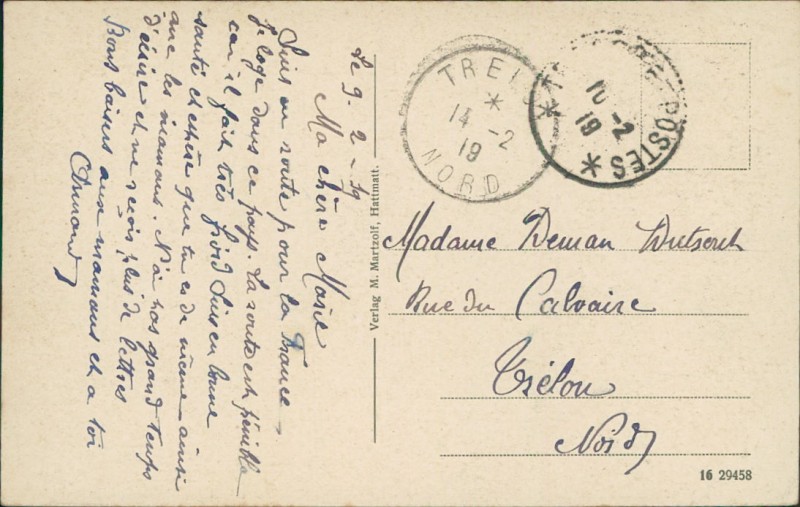 Le 9-2-19
Ma chère Marie
Suis en route pour la France,
Je loge dans ce pays. La route est pénible
car il fait très froid Suis en bonne
santé et espère que tu es de même ainsi
que les mamans. N'a pas grand temps
d'écrire et ne reçois plus de lettres
Bons baisers aux mamans et a toi
Armand
Verlag M. Martzolf, Hattmatt.
TREL
*
14 -2
19
NORD
POSTES
* *
10 -2
19
Madame Deman
Rue du Calvaire
Trélon
Nord
16 29458